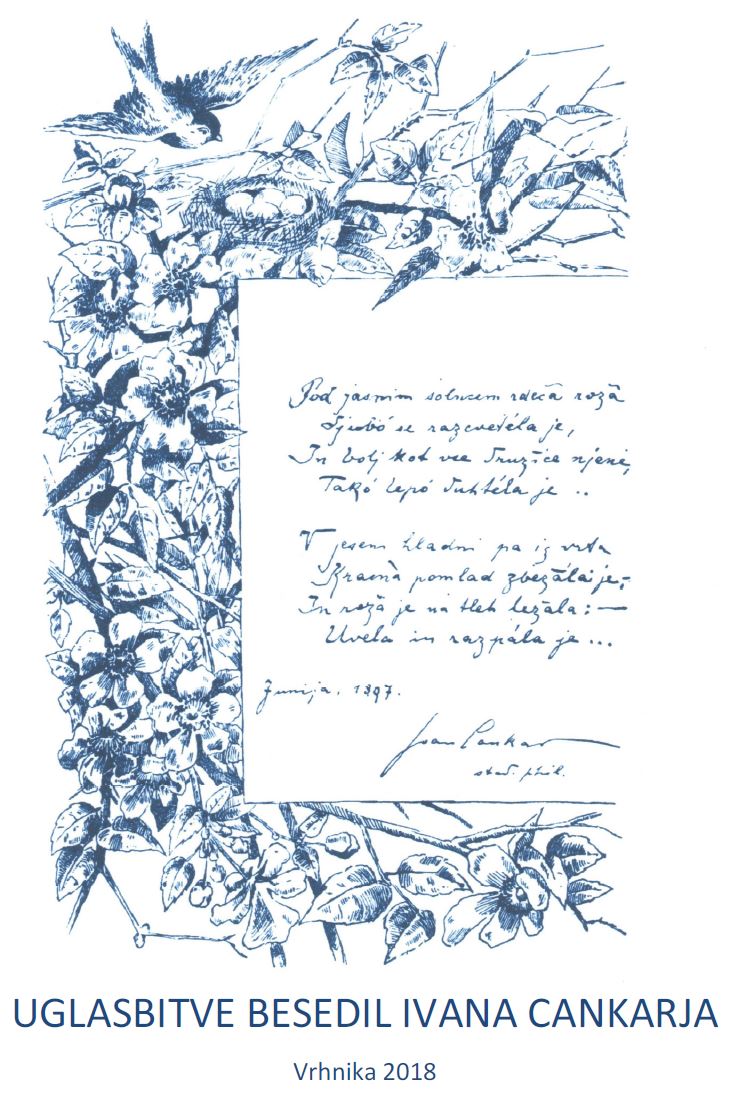 Pod jasnim solncem rdeča roža
Ljubó se razcvetéla je,
In bolj kot vse družice njene,
Takó lepó duhtéla je ..
V jeseni hladni pa iz vrta
Krasnà pomlad zbežála je, –
In roža je na tleh ležála: —
Uvela in razpála je ...
Junija, 1897.
Ivan Cankar
stud. phil.
UGLASBITVE BESEDIL IVANA CANKARJA
Vrhnika 2018